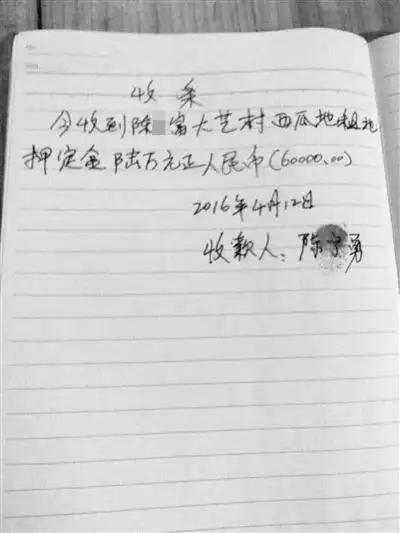 收条
今收到陈富大艺村西瓜地租地
押定金陆万元正人民币(60000.00)
2016年4月12日
收款人：陈 勇